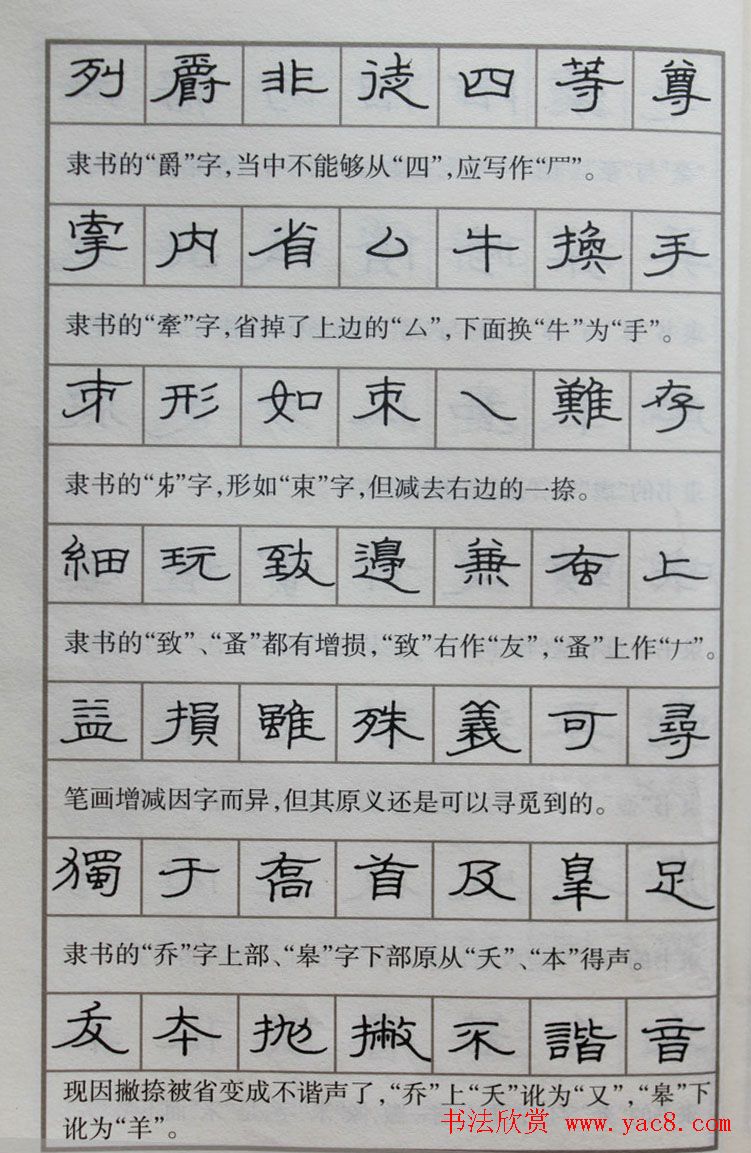 列爵非徒四等尊
隶书的“爵”字，当中不能够从“四”，应写作“罒”。
牽内省厶牛換手
隶书的“牵”字，省掉了上边的“厶”，下面换“牛”为“手”。
形如束乀難存
隶书的“”字，形如“束”字，但减去右边的一捺。
細玩致邊兼蚤上
隶书的“致”、“蚤”都有增损，“致”右作“友”，“蚤”上作“𠂇”。
益損雖殊義可尋
笔画增减因字而异，但其原义还是可以寻觅到的。
獨于喬首及皋足
隶书的“乔”字上部、“皋”字下部原从“夭”、“本”得声。
夭本抛撇不諧音
现因撇捺被省变成不谐声了，“乔”上“夭”讹为“又”，“皋”下
讹为“羊”。
书法欣赏 www.yac8.com